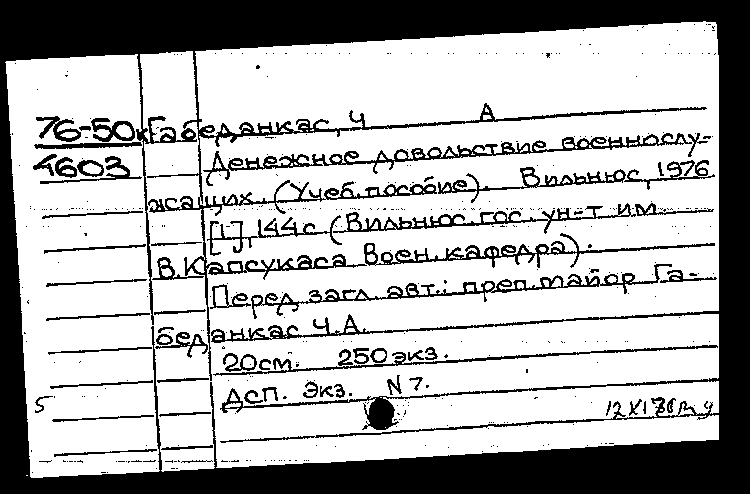 76-50к Габеданкас, Ч А
4603 Денежное довольствие военнослу-
жащих. (Учеб. пособие). Вильнюс, 1976
[1], 144с (Вильнюс. гос. ун-т им
В. Капсукаса Воен. кафедра).
Перед загл. авт.: преп. майор Га-
беданкас Ч.А.
20см. 250 экз.
ДСП. Экз. N 7.
5